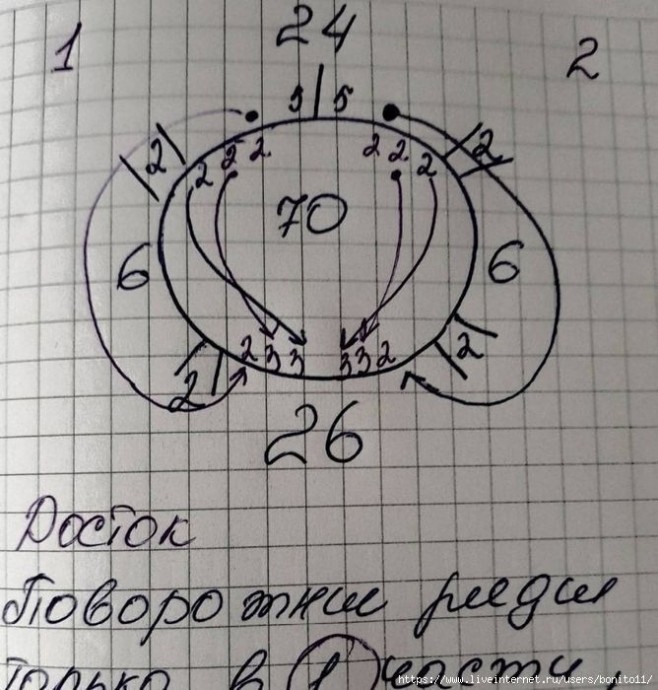 24
1 2
5 5
2 2 2 2 2 2 2 2
70
6 6
2 3 3 3 3 2
2 2
26
Росток
Поворотные ряды
только в 1 части.
https://www.liveinternet.ru/users/bonito11/